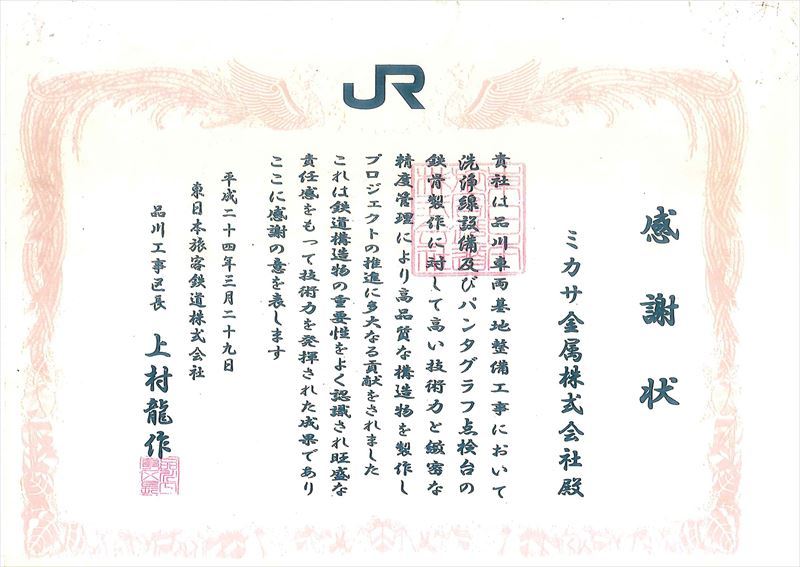 JR
感謝状
ミカサ金属株式会社殿
貴社は品川車両基地整備工事において
洗浄線設備及びパンタグラフ点検台の
鉄骨製作に対して高い技術力と緻密な
精度管理により高品質な構造物を製作し
プロジェクトの推進に多大なる貢献をされました
これは鉄道構造物の重要性をよく認識され旺盛な
責任感をもって技術力を発揮された成果であり
ここに感謝の意を表します
平成二十四年三月二十九日
東日本旅客鉄道株式会社
品川工事区長 上村龍作